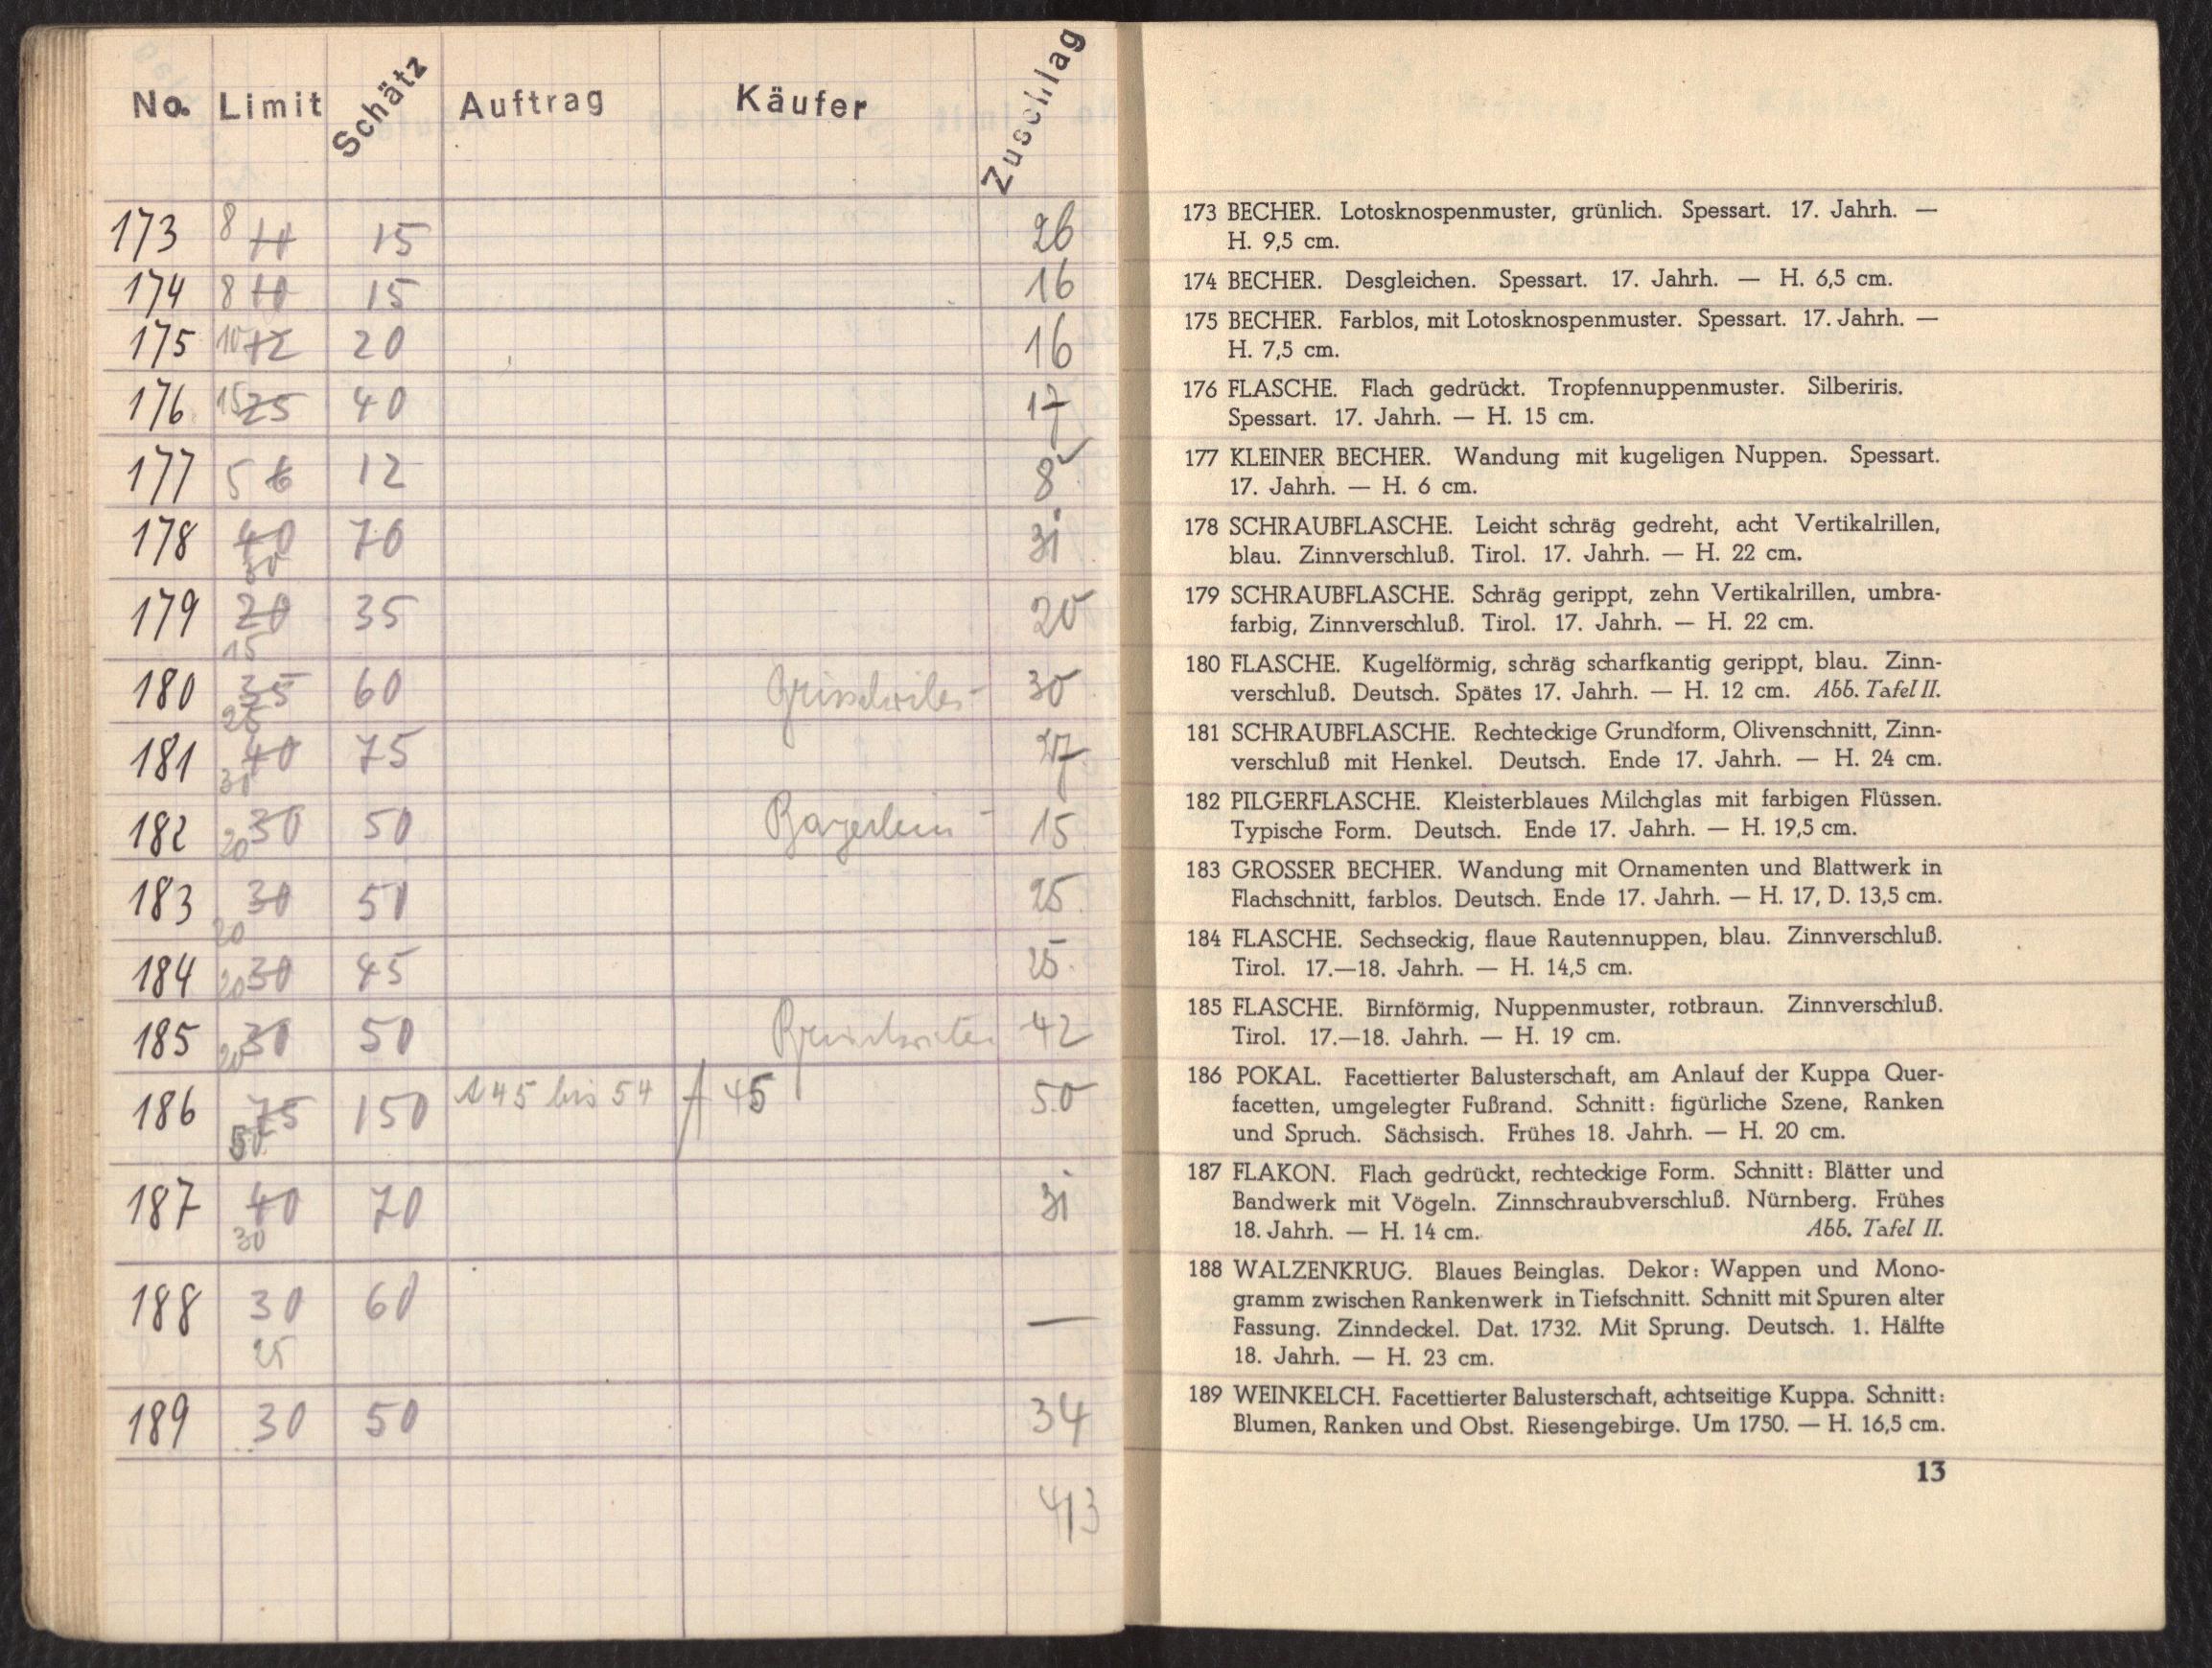 No. Limit Schätz Auftrag Käufer Zuschlag
173 8 15 26
174 8 10 15 16
175 10 12 20 16
176 15 25 40 17
177 5 6 12 8
178 40 70 31
30
179 20 35 20
15
180 35 60 30
25
181 40 75 27
30
182 20 30 50 Bayerlein - 15
183 30 50 25
20
184 20 30 45 25
185 20 30 50 42
186 75 150 A 45 bis 54 A 45 50
50
187 40 70 31
30
188 30 60 —
25
189 30 50 34
413
173 BECHER. Lotosknospenmuster, grünlich. Spessart. 17. Jahrh. —
H. 9,5 cm.
174 BECHER. Desgleichen. Spessart. 17. Jahrh. — H. 6,5 cm.
175 BECHER. Farblos, mit Lotosknospenmuster. Spessart. 17. Jahrh. —
H. 7,5 cm.
176 FLASCHE. Flach gedrückt. Tropfennuppenmuster. Silberiris.
Spessart. 17. Jahrh. — H. 15 cm.
177 KLEINER BECHER. Wandung mit kugeligen Nuppen. Spessart.
17. Jahrh. — H. 6 cm.
178 SCHRAUBFLASCHE. Leicht schräg gedreht, acht Vertikalrillen,
blau. Zinnverschluß. Tirol. 17. Jahrh. — H. 22 cm.
179 SCHRAUBFLASCHE. Schräg gerippt, zehn Vertikalrillen, umbra-
farbig, Zinnverschluß. Tirol. 17. Jahrh. — H. 22 cm.
180 FLASCHE. Kugelförmig, schräg scharfkantig gerippt, blau. Zinn-
verschluß. Deutsch. Spätes 17. Jahrh. — H. 12 cm. Abb. Tafel II.
181 SCHRAUBFLASCHE. Rechteckige Grundform, Olivenschnitt, Zinn-
verschluß mit Henkel. Deutsch. Ende 17. Jahrh. — H. 24 cm.
182 PILGERFLASCHE. Kleisterblaues Milchglas mit farbigen Flüssen.
Typische Form. Deutsch. Ende 17. Jahrh. — H. 19,5 cm.
183 GROSSER BECHER. Wandung mit Ornamenten und Blattwerk in
Flachschnitt, farblos. Deutsch. Ende 17. Jahrh. — H. 17, D. 13,5 cm.
184 FLASCHE. Sechseckig, flaue Rautennuppen, blau. Zinnverschluß.
Tirol. 17.—18. Jahrh. — H. 14,5 cm.
185 FLASCHE. Birnförmig, Nuppenmuster, rotbraun. Zinnverschluß.
Tirol. 17.—18. Jahrh. — H. 19 cm.
186 POKAL. Facettierter Balusterschaft, am Anlauf der Kuppa Quer-
facetten, umgelegter Fußrand. Schnitt: figürliche Szene, Ranken
und Spruch. Sächsisch. Frühes 18. Jahrh. — H. 20 cm.
187 FLAKON. Flach gedrückt, rechteckige Form. Schnitt: Blätter und
Bandwerk mit Vögeln. Zinnschraubverschluß. Nürnberg. Frühes
18. Jahrh. — H. 14 cm. Abb. Tafel II.
188 WALZENKRUG. Blaues Beinglas. Dekor: Wappen und Mono-
gramm zwischen Rankenwerk in Tiefschnitt. Schnitt mit Spuren alter
Fassung. Zinndeckel. Dat. 1732. Mit Sprung. Deutsch. 1. Hälfte
18. Jahrh. — H. 23 cm.
189 WEINKELCH. Facettierter Balusterschaft, achtseitige Kuppa. Schnitt:
Blumen, Ranken und Obst. Riesengebirge. Um 1750. — H. 16,5 cm.
13